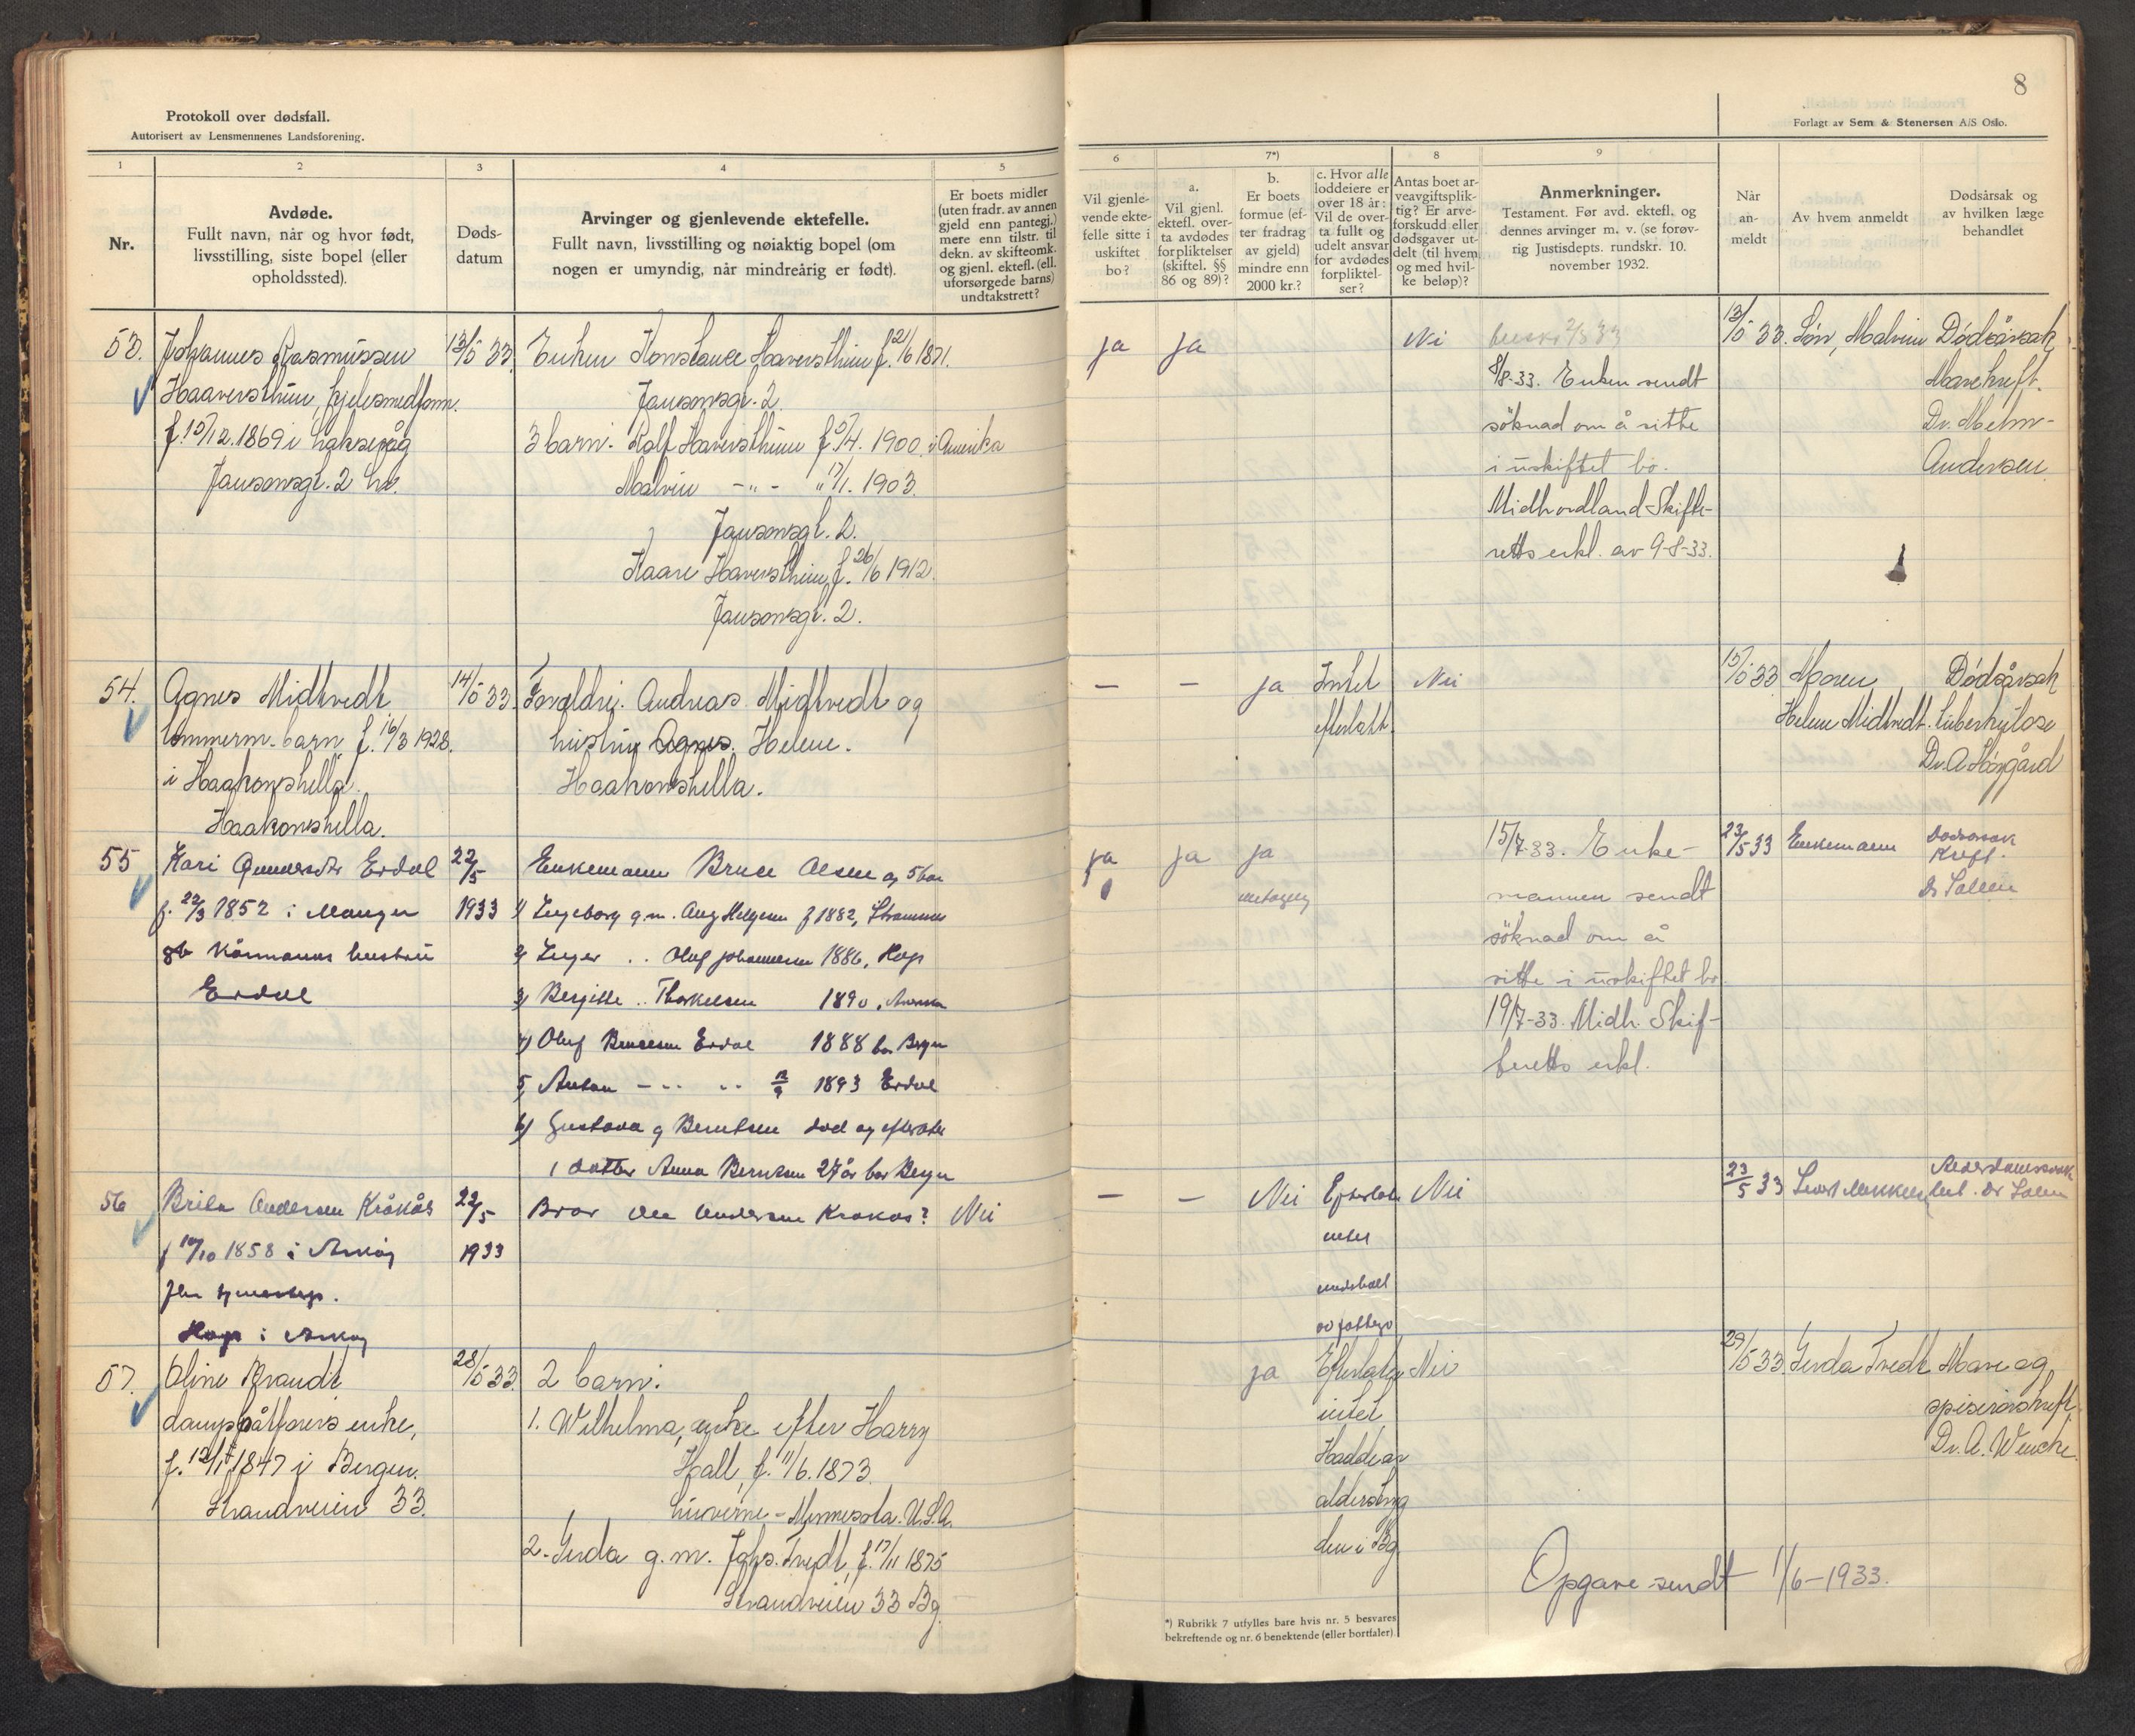 Protokoll over dødsfall.
Autorisert av Lensmennenes Landsforening.
1
2
3
4
5
Nr.
Avdøde.
Fullt navn, når og hvor født,
livsstilling, siste bopel (eller
opholdssted).
Døds-
datum
Arvinger og gjenlevende ektefelle.
Fullt navn, livsstilling og nøiaktig bopel (om
nogen er umyndig, når mindreårig er født).
Er boets midler
(uten fradr. av annen
gjeld enn pantegj.)
mere enn tilstr. til
dekn. av skifteomk.
og gjenl. ektefl. (ell.
uforsørgede barns)
undtakstrett?
53.
Johannes Rasmussen
Haaversthun, fhv.
f. 15/12.1869 i Laksevåg
Jansonsgt. 2
13/5 33.
Enken Konstance Haaversthun f. 21/6 1871.
Jansonsgt. 2.
3 barn. Rolf Haversthun f. 5/4. 1900 i Amerika
Malvin -"- " 17/1. 1903.
Jansonsgt. 2.
Kaare Haversthun, f. 26/6 1912.
Jansonsgt. 2.
54.
Agnes Midtvedt
tømmerm. barn f. 16/3 1928.
i Haakonshella.
Haakonshella.
14/5 33.
Foreldre. Andreas Midtvedt og
hustru Agnes Helene.
Haakonshella.
55
Kari Gundersdtr Erdal
f. 22/3 1852 i Manger
gb kårmanns hustru
Erdal
22/5
1933
Enkemann Brun Olsen og 5 barn
1) Ingeborg g.m. Aug Helgesen f 1882, Strømsnes
2) Inger .. Oluf Johannesen 1886, Hop
3) Bergitte .. Thorkelsen 1890, Amerika
4) Oluf Erdal 1888 bor Bergen
5) Anton -.. .. 12/9 1893 Erdal
6) Gustava g Berntsen død og efterlot
1 datter Anna Berntsen 27 år bor Bergen
56
Brita Andersen Kråkås
f 10/10 1858 i Askøy
Hop i Askøy
22/5
1933
Bror Ole Andersen Kråkås?
Nei
57.
Oline Brandt
dampbåtførers enke,
f. 12/1 1847 i Bergen.
Strandveien 33.
28/5 33.
2 barn.
1. Wilhelma, enke efter Harry
Hall, f. 11/6. 1873.
Luverne - Minnesota. U.S.A.
2. Gerda g.m. Johs. Tvedt, f. 17/11 1875
Strandveien 33 Bg.
8
Forlagt av Sem & Stenersen A/S Oslo.
6
7*)
8
9
Vil gjenle-
vende ekte-
felle sitte i
uskiftet
bo?
a.
Vil gjenl.
ektefl. over-
ta avdødes
forpliktelser
(skiftel. §§
86 og 89)?
b.
Er boets
formue (ef-
ter fradrag
av gjeld)
mindre enn
2000 kr.?
c. Hvor alle
loddeiere er
over 18 år:
Vil de over-
ta fullt og
udelt ansvar
for avdødes
forpliktel-
ser?
Antas boet ar-
veavgiftsplik-
tig? Er arve-
forskudd eller
dødsgaver ut-
delt (til hvem
og med hvil-
ke beløp)?
Anmerkninger.
Testament. Før avd. ektefl. og
dennes arvinger m. v. (se forøv-
rig Justisdepts. rundskr. 10.
november 1932.
Når
an-
meldt
Av hvem anmeldt
Dødsårsak og
av hvilken læge
behandlet
ja
ja
Nei
8/8-33. Enken sendt
söknad om å sitte
i uskiftet bo.
Midhordland Skifte-
retts erkl. av 9-8-33.
13/5 33.
Sön, Malvin
Dödsårsak
Mavekreft.
Dr. Mohn-
Andersen.
—
—
ja
Intet
efterlatt
Nei
15/5 33
Moren
Helene Midtvedt.
Dödsårsak
tuberkulose
ja
ja
ja
15/7-33. Enke-
mannen sendt
söknad om å
sitte i uskiftet bo
19/7-33. Midh. Skif-
teretts erkl.
23/5 33
Enkemann
Dødsårsak
Kreft.
—
—
Nei
Efterlot
intet
Nei
23/5 33
ja
Efterlatt
intet
Hadde
alderstrygd
den i Bg.
Nei
29/5 33
Gerda Tvedt
Mave og
spiserørskreft.
Dr. A. Wencke.
Opgave sendt 1/6-1933.
*) Rubrikk 7 utfylles bare hvis nr. 5 besvares
bekreftende og nr. 6 benektende (eller bortfaler).